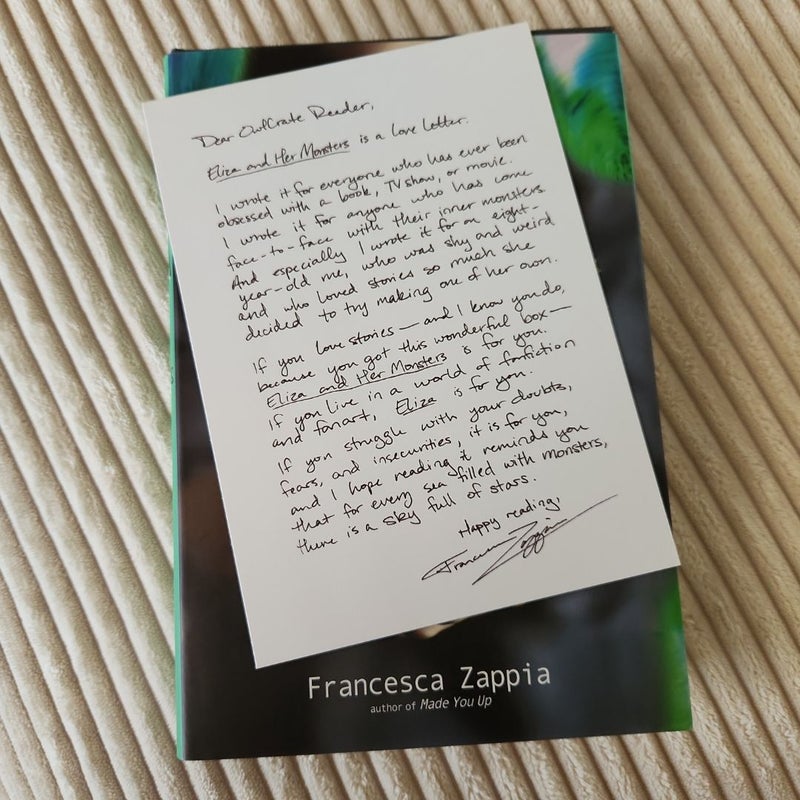 Dear OwlCrate Reader,
Eliza and Her Monsters is a love letter.
I wrote it for everyone who has ever been
obsessed with a book, TV show, or movie.
I wrote it for anyone who has come
face-to-face with their inner monsters.
And especially I wrote it for an eight-
year-old me, who was shy and weird
and who loved stories so much she
decided to try making one of her own.
If you love stories — and I know you do,
because you got this wonderful box —
Eliza and Her Monsters is for you.
If you live in a world of fanfiction
and fanart, Eliza is for you.
If you struggle with your doubts,
fears, and insecurities, it is for you,
and I hope reading it reminds you
that for every sea filled with monsters,
there is a sky full of stars.
Happy reading,
Francesca Zappia
Francesca Zappia
author of Made You Up